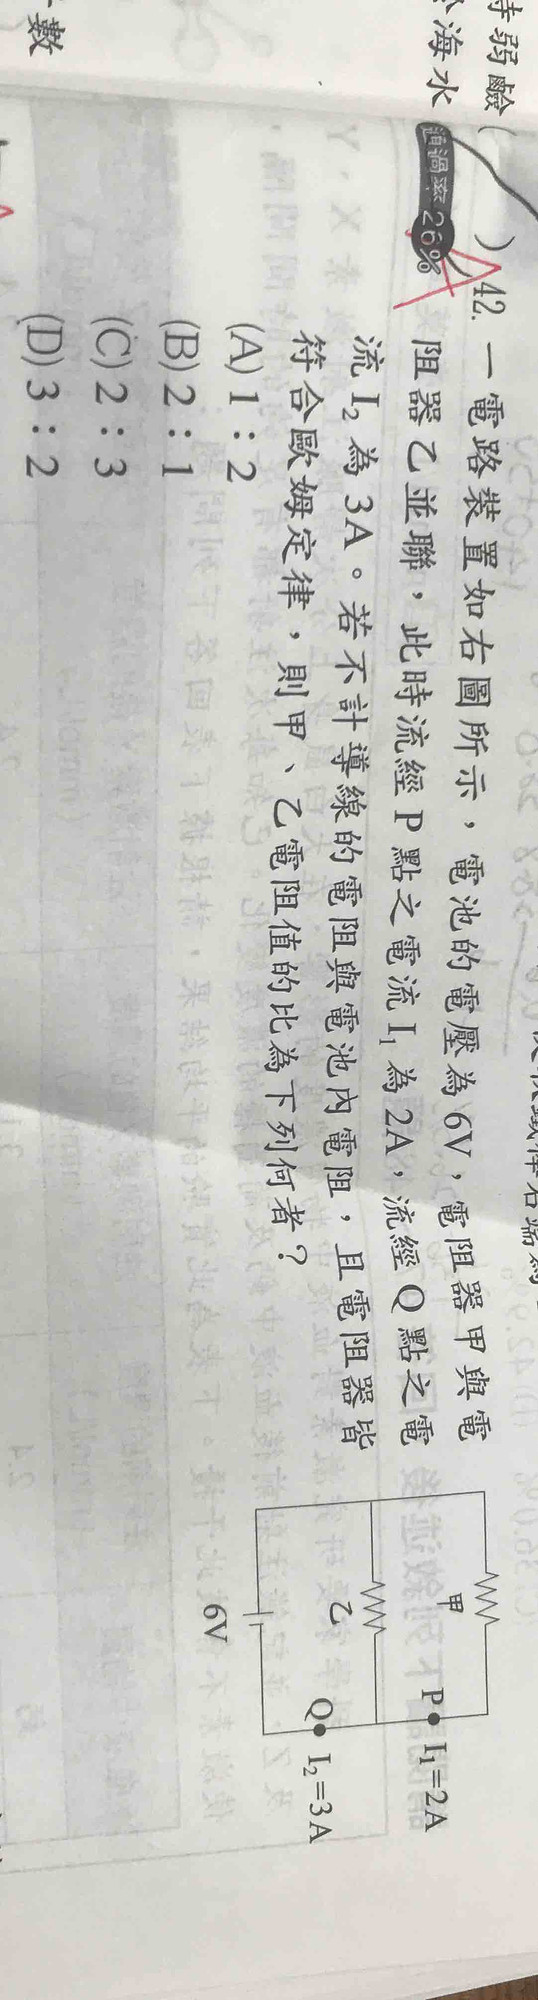 持弱鹼(
海水
數
通過率 26%
) 42. 一電路裝置如右圖所示，電池的電壓為 6V，電阻器甲與電
阻器乙並聯，此時流經 P 點之電流 I₁ 為 2A，流經 Q 點之電
流 I₂ 為 3A。若不計導線的電阻與電池內電阻，且電阻器皆
符合歐姆定律，則甲、乙電阻值的比為下列何者？
(A) 1：2
(B) 2：1
(C) 2：3
(D) 3：2
甲
P
I₁=2A
乙
Q
I₂=3A
6V